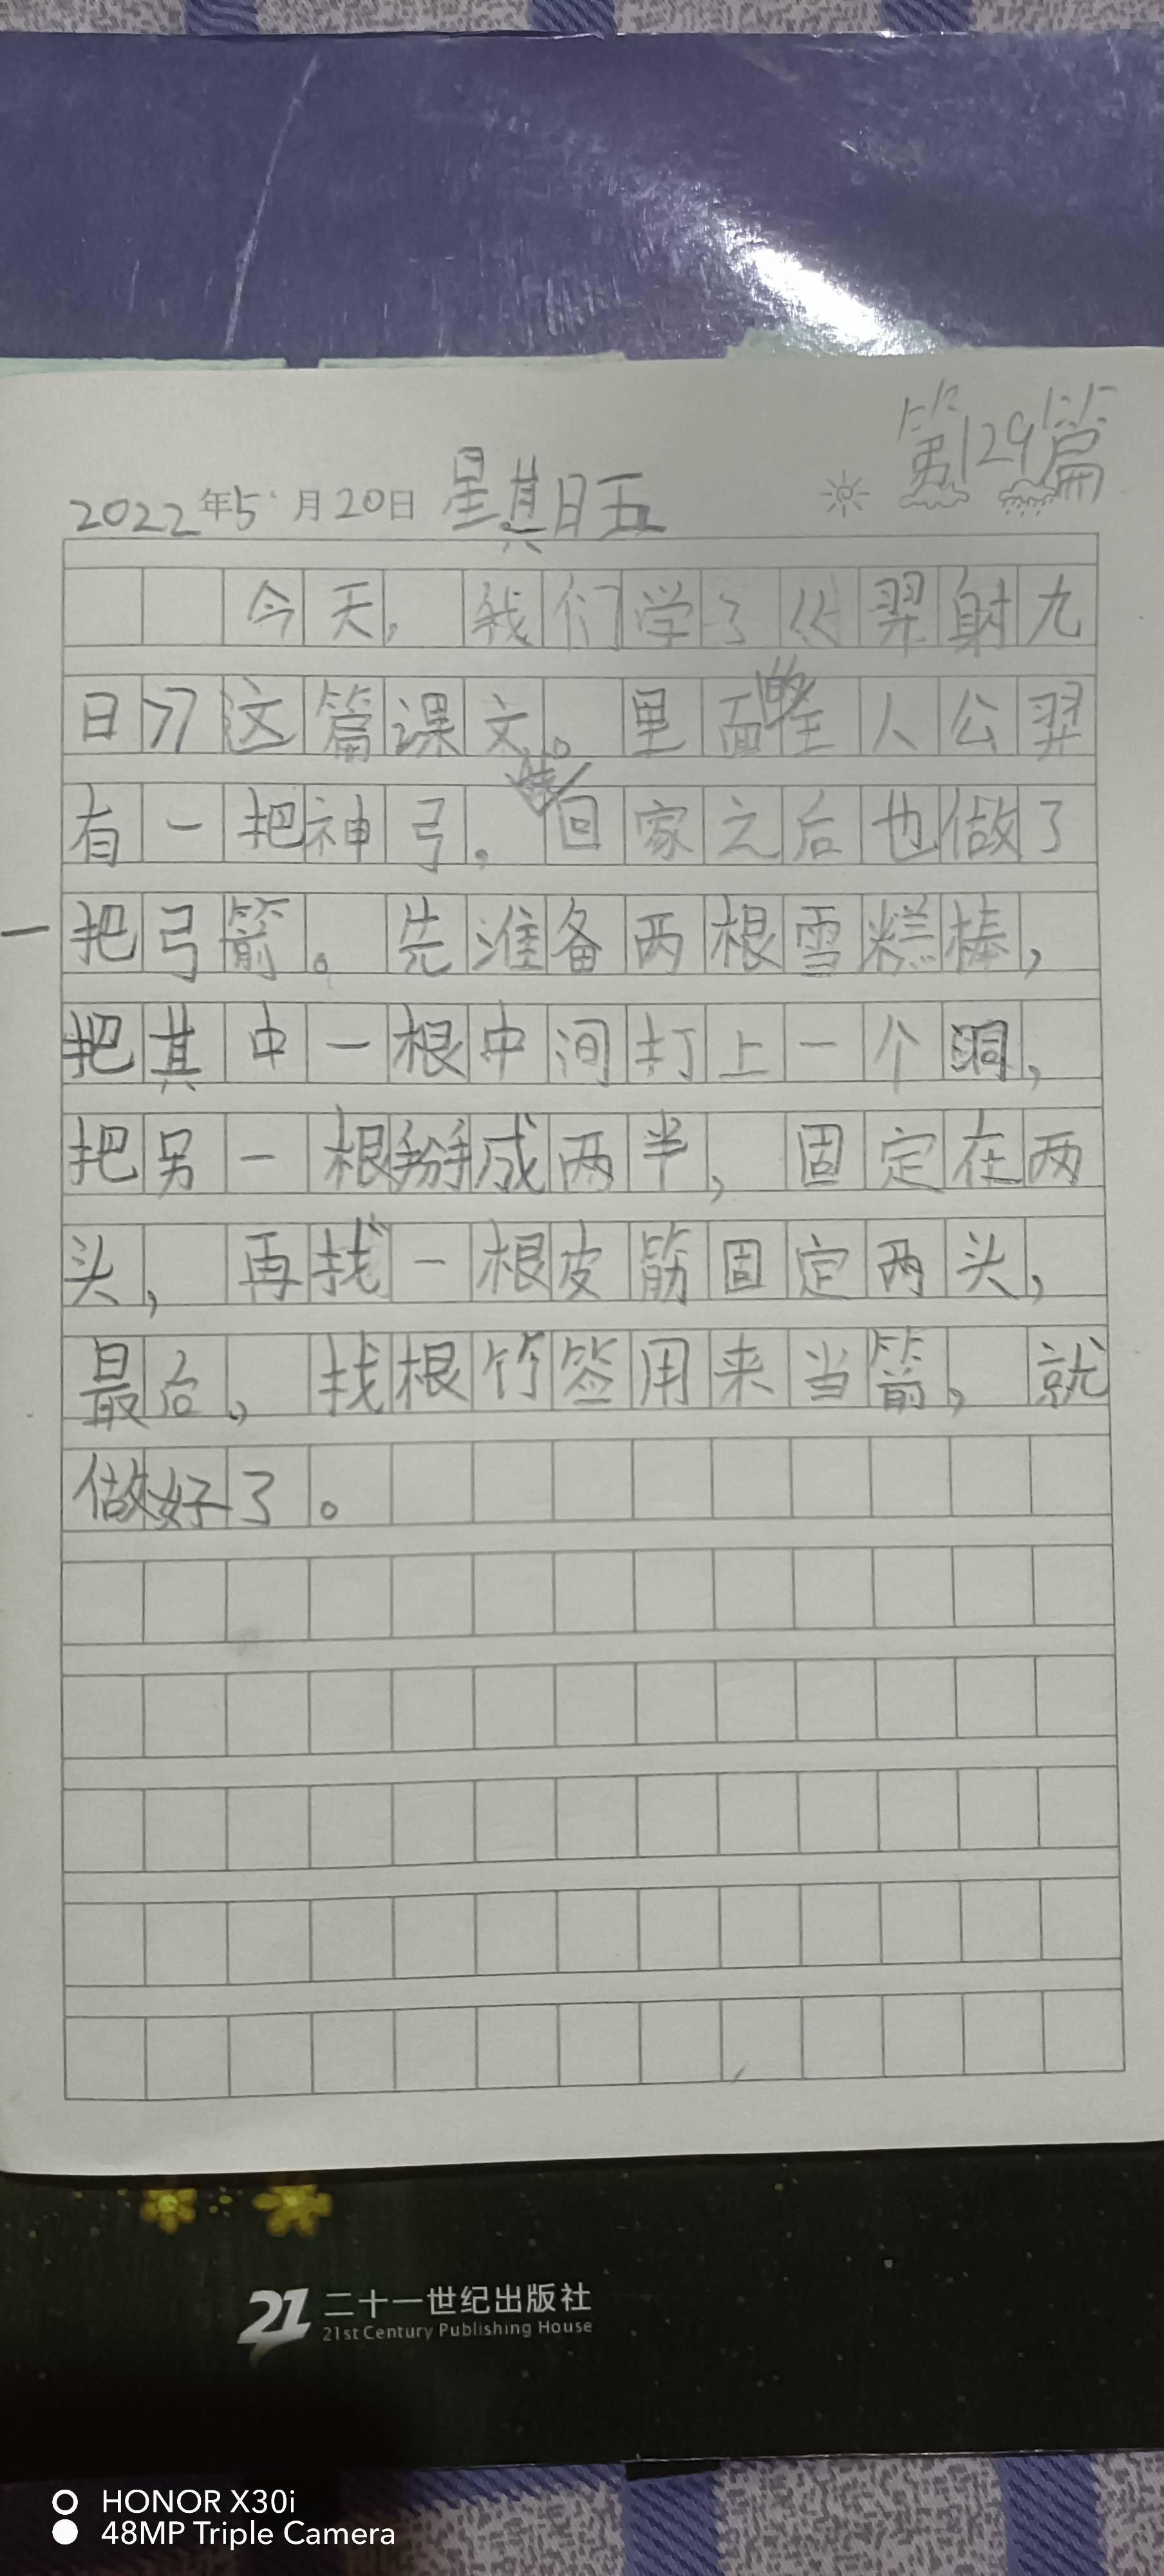 第129篇
2022年5月20日 星期五
今天，我们学了《羿射九
日》这篇课文。里面的主人公羿
有一把神弓。我回家之后也做了
一把弓箭。先准备两根雪糕棒，
把其中一根中间打上一个洞，
把另一根掰成两半，固定在两
头，再找一根皮筋固定两头，
最后，找根竹签用来当箭，就
做好了。
21 二十一世纪出版社
21st Century Publishing House
HONOR X30i
48MP Triple Camera